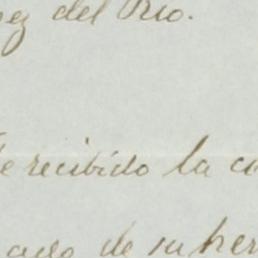 ez del Rio.
e recibido la co
ado de su her